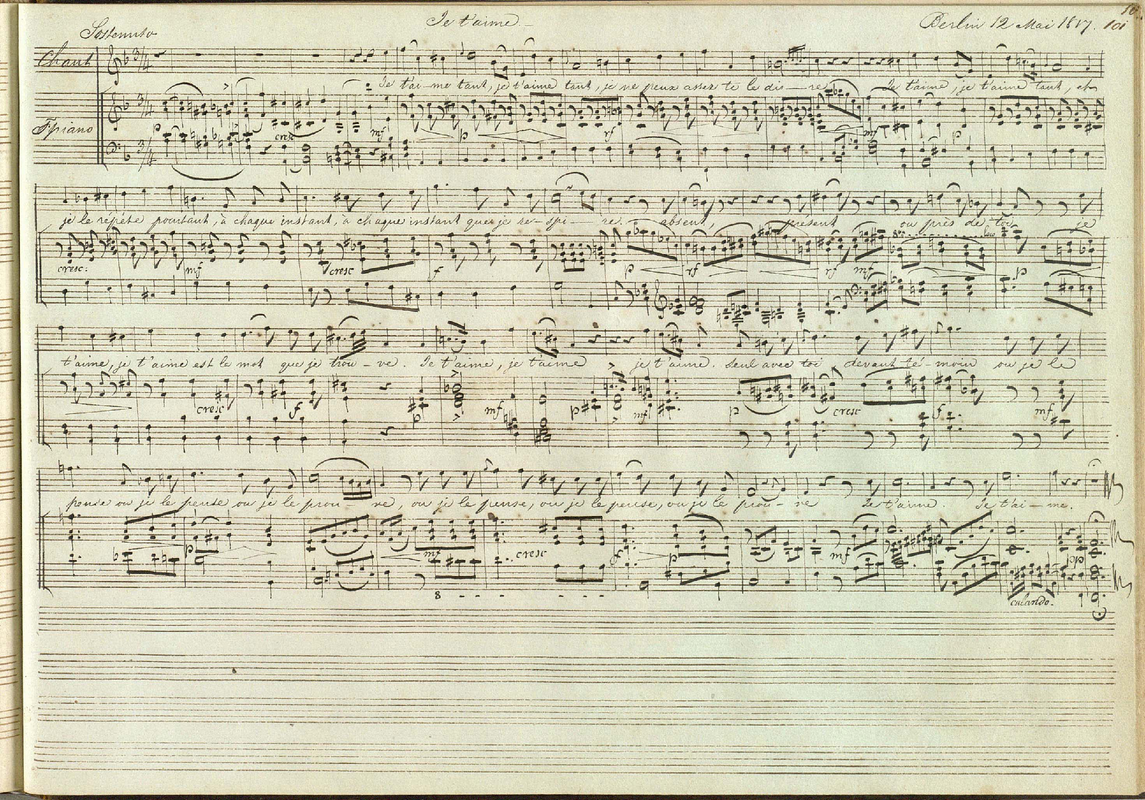 Je t'aime
Berlin 12 Mai 1817. 101
Sostenuto
Chant
Fpiano
Je t'ai-me tant, je t'aime tant, je ne peux assez te le di--re Je t'aime, je t'aime tant, et
cresc mf p rf p mf p
je le répète pourtant, à chaque instant, à chaque instant que je re-spi-re absent, présent ou près de toi je
cresc: mf cresc f p rf rf mf p
t'aime, je t'aime est le mot que je trou-ve Je t'aime, je t'aime je t'aime. seul avec toi devant té-moin ou je le
cresc f mf p mf p cresc f mf
pense ou je le pense ou je le prou-ve ou je le pense, ou je le pense, ou je le prou-ve Je t'aime Je t'ai-me.
p mf cresc f p mf pp
8
calando.